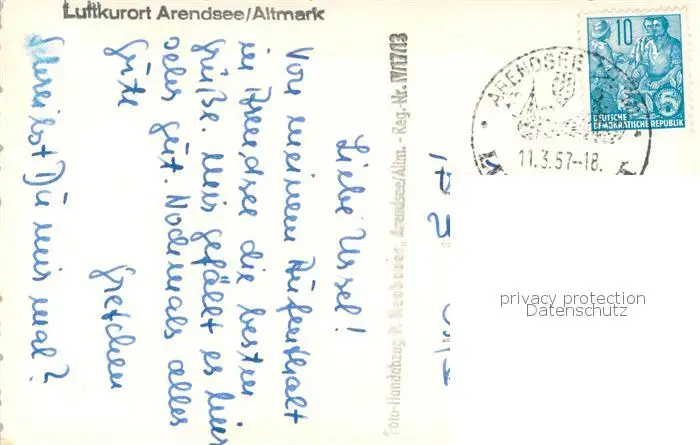 Luftkurort Arendsee/Altmark
Liebe Ursel!
Von meinem Aufenthalt
in Arendsee die besten
Grüße. Mir gefällt es hier
sehr gut. Nochmals alles
Gute
Gretchen
Schreibst Du mir mal?
Foto-Handabzug P. Neubauer, Arendsee/Altm. - Reg.-Nr. IV/17/13
10
DEUTSCHE
DEMOKRATISCHE REPUBLIK
5
ARENDSEE
11.3.57-18.
privacy protection
Datenschutz